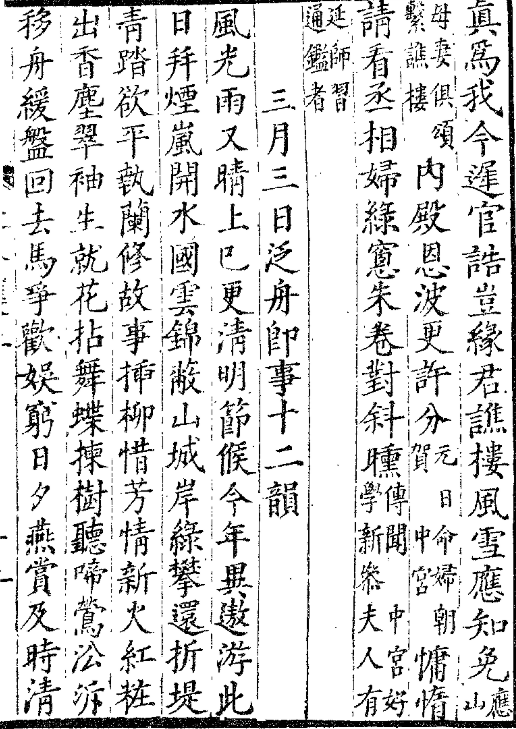 真爲我今遲官誥豈緣君譙樓風雪應知免應山
母妻俱頌繫譙樓内殿恩波更許分元日命婦朝賀中宮慵惰
請看丞相婦緑窻朱卷對斜曛傳聞中宮好學新參夫人有
延師習通鑑者
三月三日泛舟即事十二韻
風光雨又晴上巳更清明節候今年異遨游此
日幷煙嵐開水國雲錦蔽山城岸緑攀還折堤
青踏欲平執蘭修故事揷柳惜芳情新火紅粧
出香塵翠袖生就花拈舞蝶揀樹聽啼鶯㳂泝
移舟緩盤回去馬爭歡娛窮日夕燕賞及時清